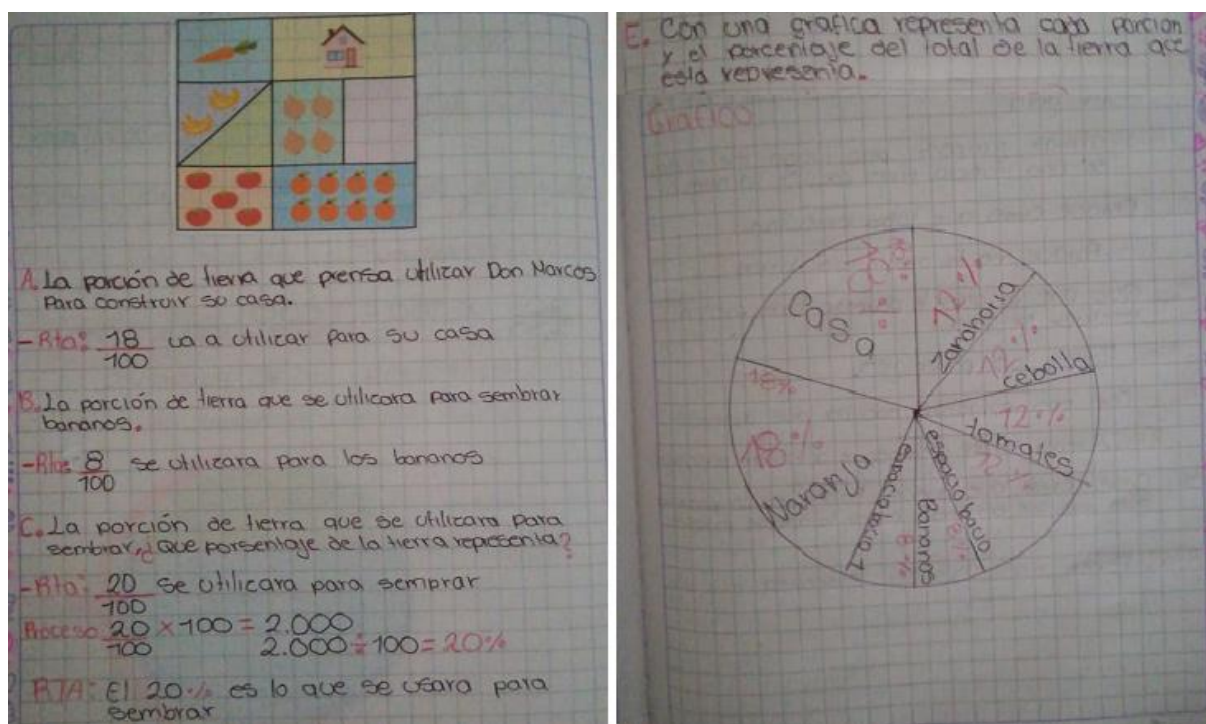 A. La porción de tierra que piensa utilizar Don Marcos
Para construir su casa.
-Rta: 18/100 va a utilizar para su casa
B. La porción de tierra que se utilizara para sembrar
bananos.
-Rta: 8/100 se utilizara para los bananos
C. La porción de tierra que se utilizara para
sembrar, ¿Que porsentaje de la tierra representa?
-Rta: 20/100 se utilizara para semprar
Proceso 20/100 × 100 = 2.000
2.000 ÷ 100 = 20%
RTA: El 20% es lo que se usara para
sembrar
E. Con una grafica representa cada porcion
y el porcentaje del total de la tierra que
esta representa.
Grafico
Casa
12%
Zanahoria
12%
cebolla
12%
tomates
12%
espacio bacio
8%
Bananos
8%
espacio bacio 1
Naranja
18%
18%